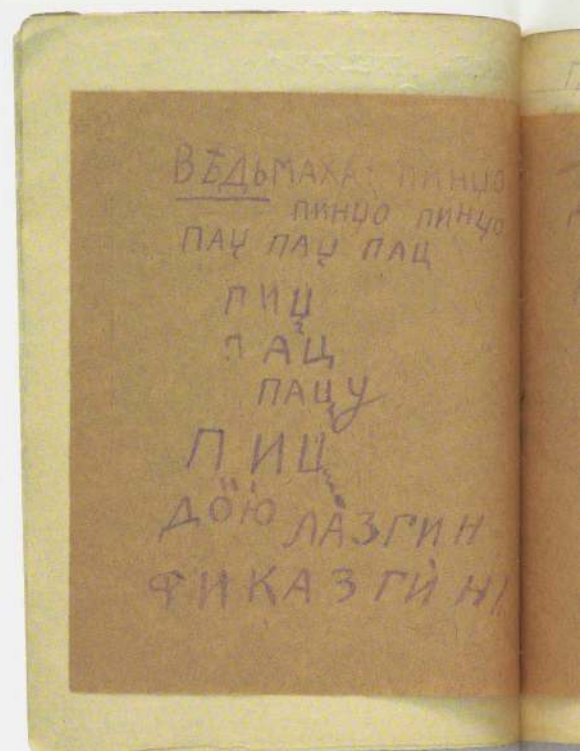 ВѢДЬМАХА: ПИНЦО
ПИНЦО ПИНЦО
ПАЦ ПАЦ ПАЦ
ПИЦ
ПАЦ
ПАЦУ
ПИЦ
ДОЮ ЛАЗГИН
ФИКАЗГИН!